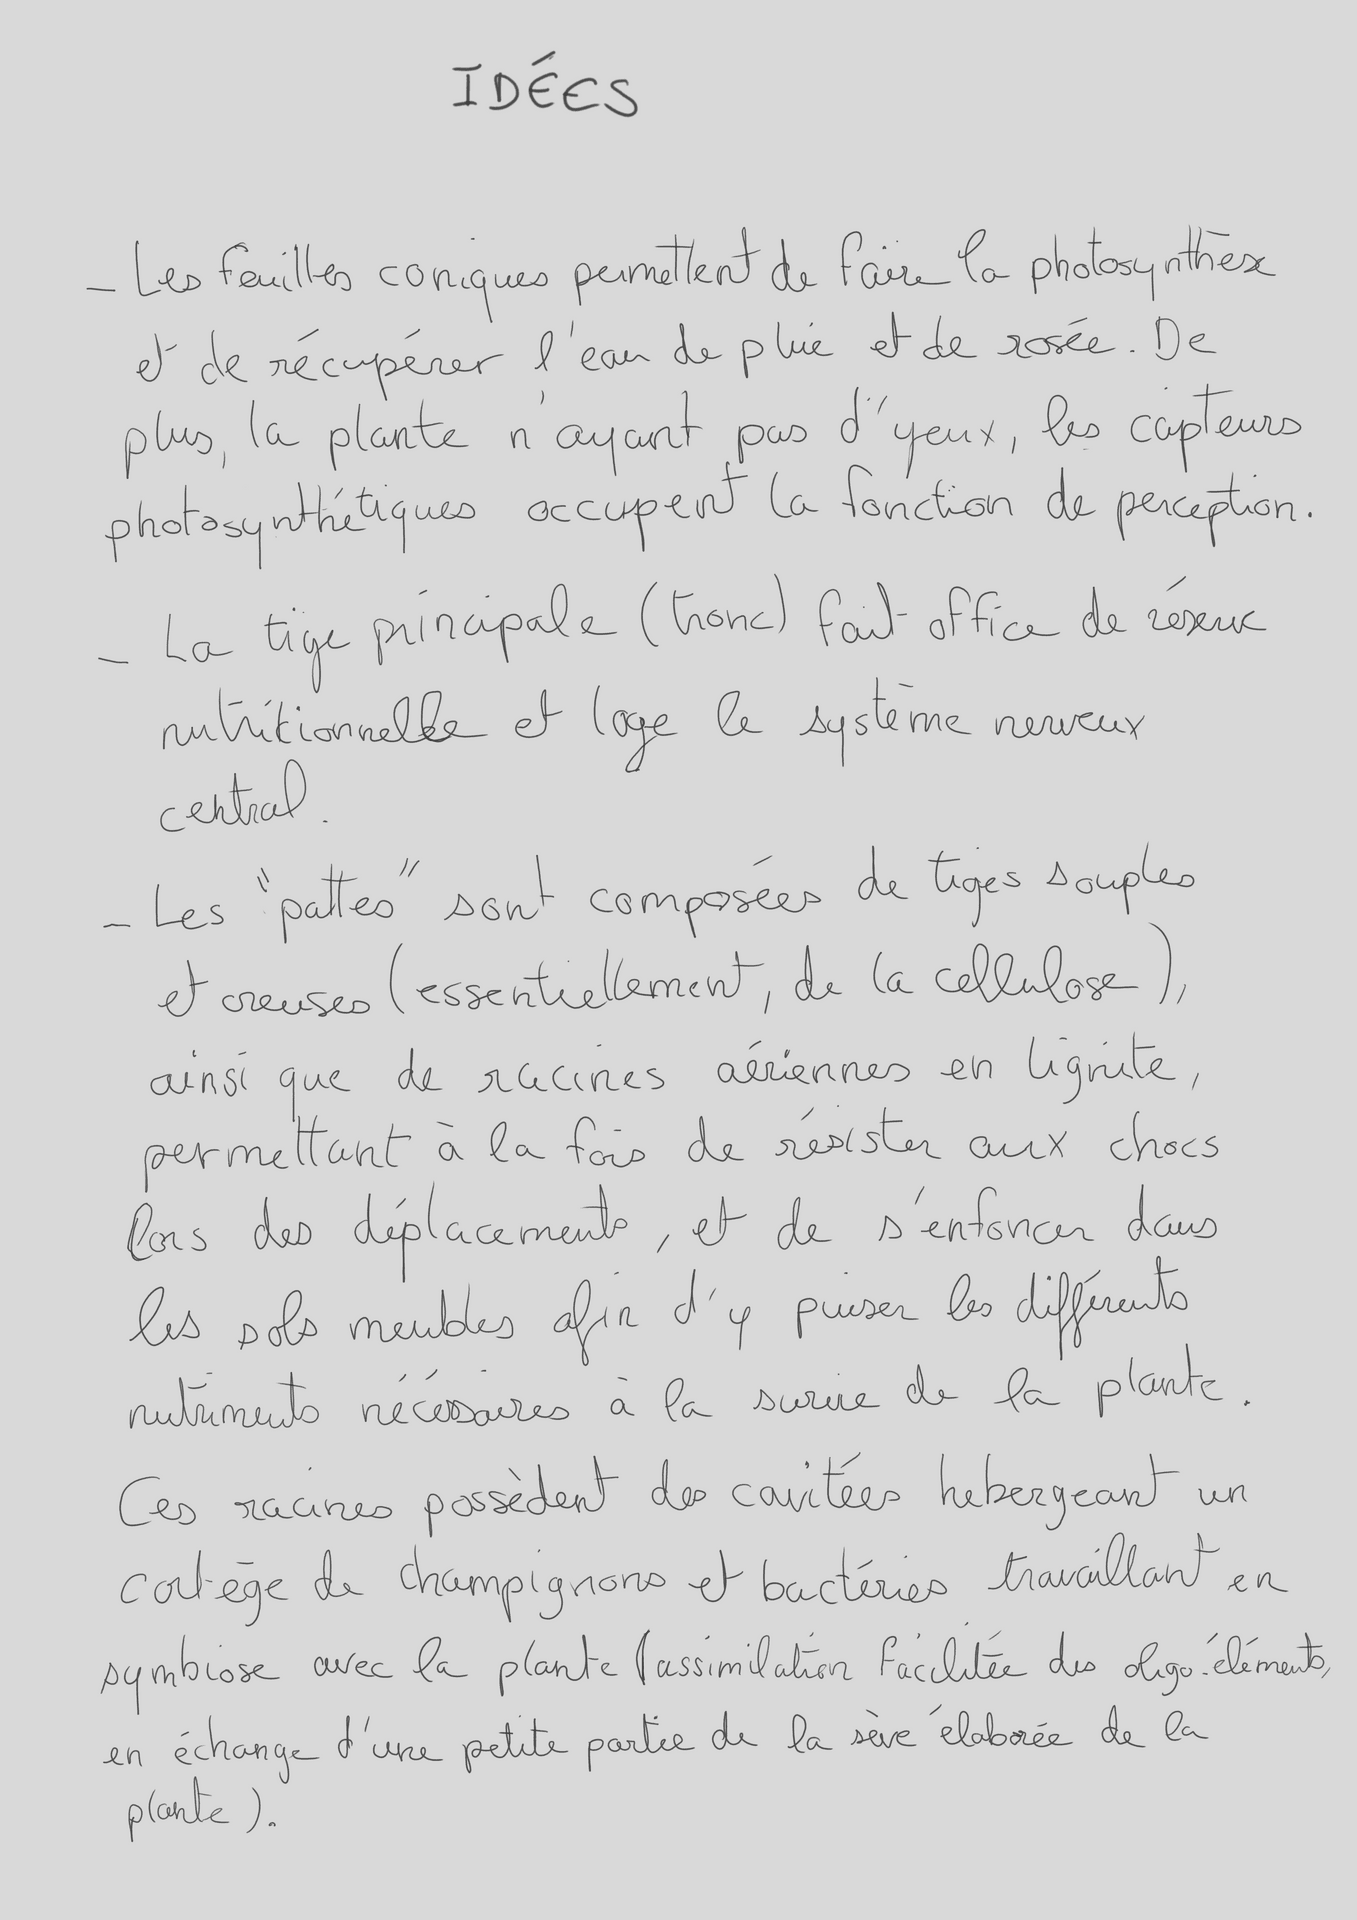 IDÉES
- Les feuilles coniques permettent de faire la photosynthèse
et de récupérer l'eau de pluie et de rosée. De
plus, la plante n'ayant pas d'yeux, les capteurs
photosynthétiques occupent la fonction de perception.
- La tige principale (tronc) fait office de réserve
nutritionnelle et loge le système nerveux
central.
- Les "pattes" sont composées de tiges souples
et creuses (essentiellement, de la cellulose),
ainsi que de racines aériennes en lignite,
permettant à la fois de résister aux chocs
lors des déplacements, et de s'enfoncer dans
les sols meubles afin d'y puiser les différents
nutriments nécessaires à la survie de la plante.
Ces racines possèdent des cavitées hebergeant un
cortège de champignons et bactéries travaillant en
symbiose avec la plante (assimilation facilitée des oligo-éléments,
en échange d'une petite partie de la sève élaborée de la
plante).